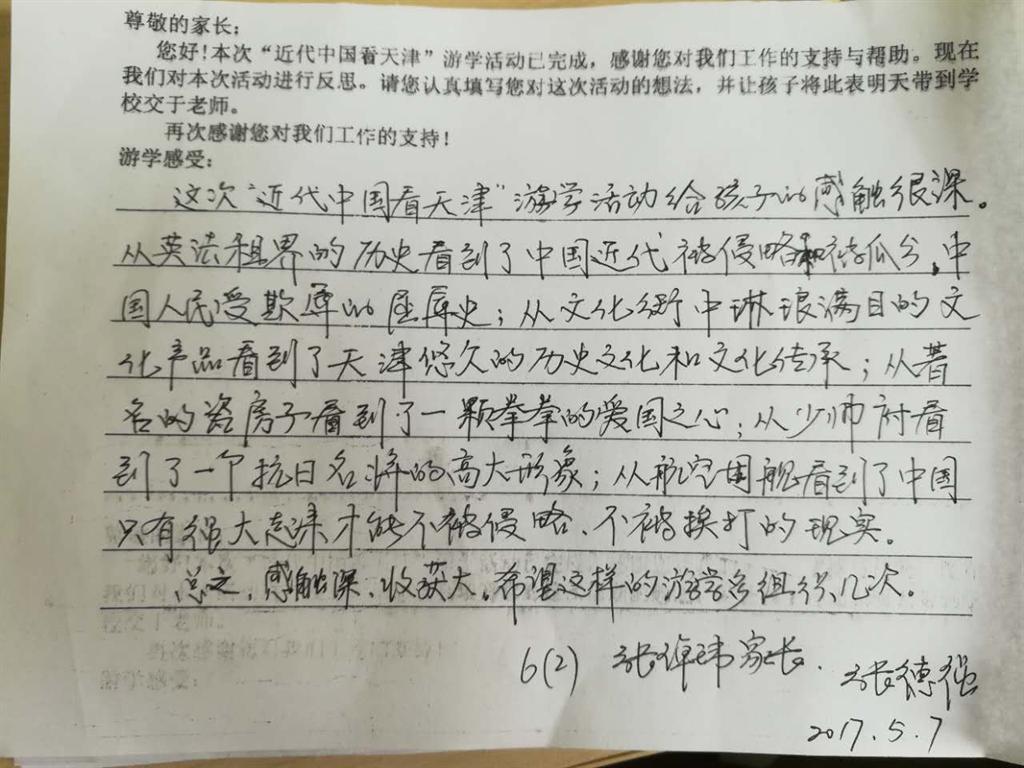 尊敬的家长：
您好！本次“近代中国看天津”游学活动已完成，感谢您对我们工作的支持与帮助。现在
我们对本次活动进行反思。请您认真填写您对这次活动的想法，并让孩子将此表明天带到学
校交于老师。
再次感谢您对我们工作的支持！
游学感受：
这次“近代中国看天津”游学活动给孩子的感触很深。
从英法租界的历史看到了中国近代被侵略和被瓜分，中
国人民受欺辱的屈辱史；从文化街中琳琅满目的文
化产品看到了天津悠久的历史文化和文化传承；从著
名的瓷房子看到了一颗拳拳的爱国之心；从少帅府看
到了一个抗日名将的高大形象；从航空母舰看到了中国
只有强大起来才能不被侵略、不被挨打的现实。
总之，感触深、收获大。希望这样的游学多组织几次。
6(2) 张 玮家长. 张德强
2017.5.7
我们对
校交于老师。
再次感谢
游学感受：